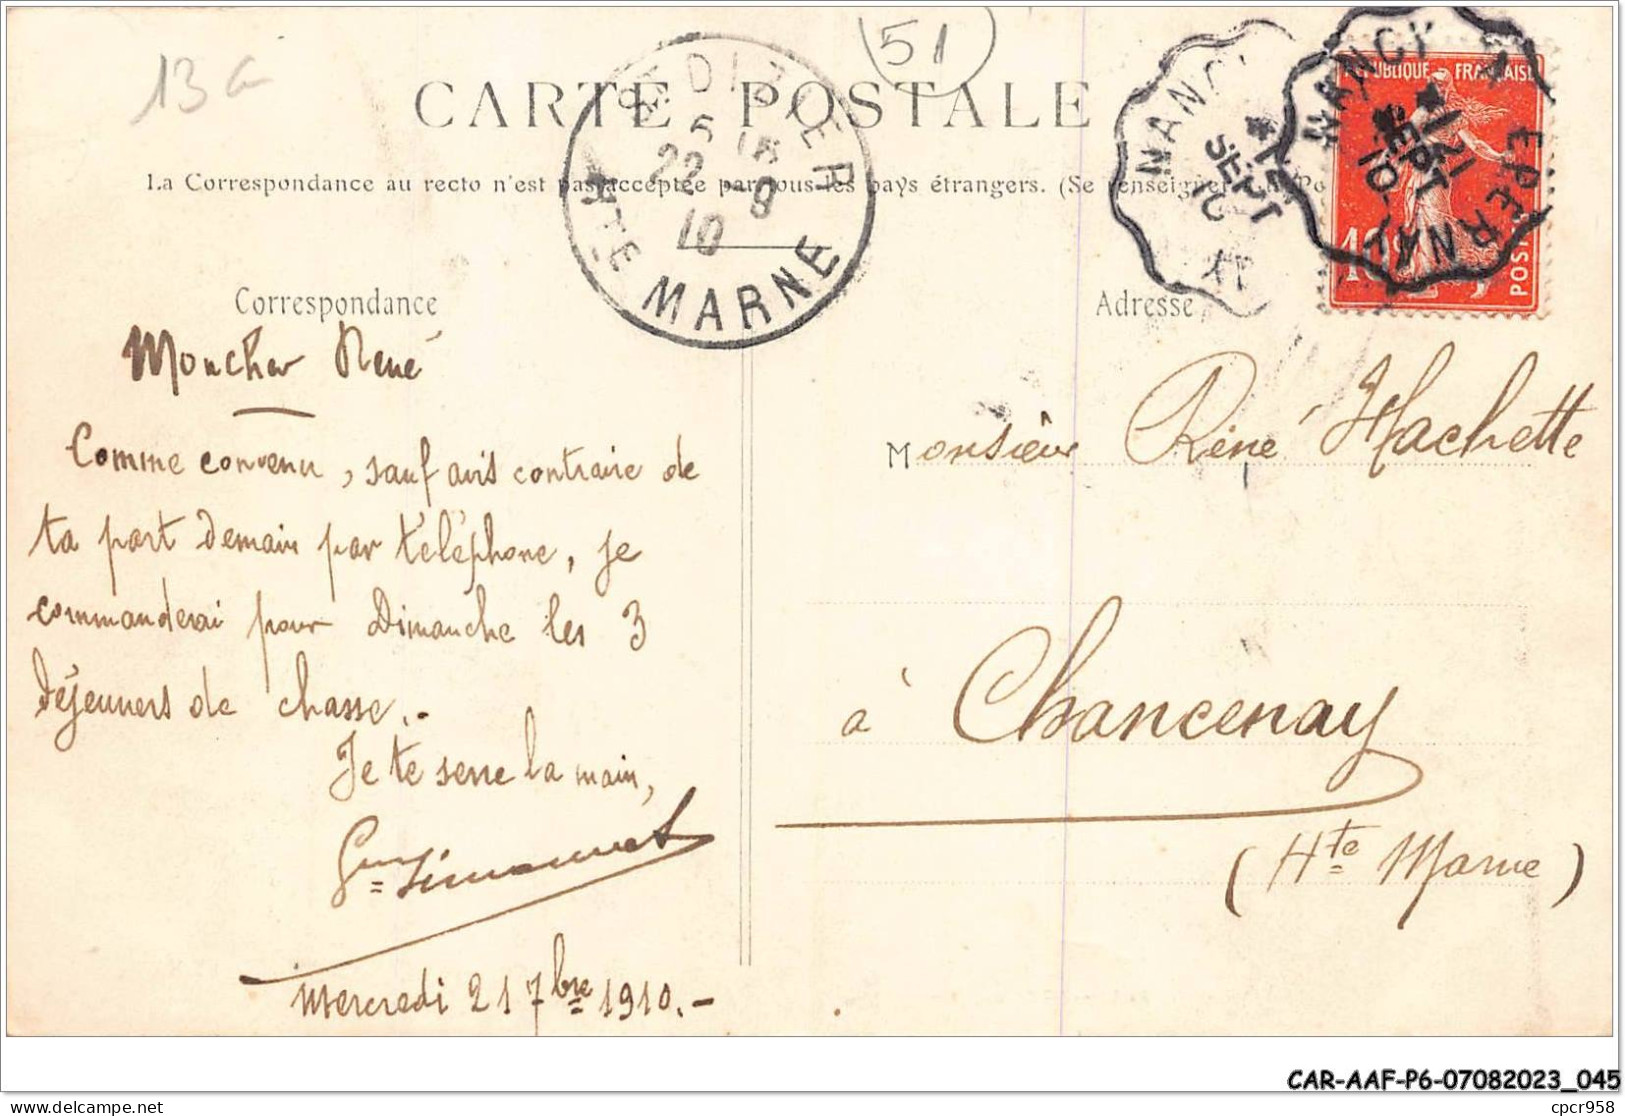 13 G
51
CARTE POSTALE
La Correspondance au recto n'est pas acceptée par tous les pays étrangers. (Se renseigner
Correspondance
Mon cher René
Comme convenu, sauf avis contraire de
ta part demain par téléphone, je
commanderai pour Dimanche les 3
déjeuners de chasse.-
Je te serre la main,
Simonnet
Mercredi 21 7bre 1910.-
ST DIZIER
22 9
10
HTE MARNE
NANCY
SEPT
10
NANCY A EPERNAY
21
SEPT
10
REPUBLIQUE FRANÇAISE
10c
POSTES
Adresse
Monsieur René Hachette
à Chancenay
(Hte Marne)
CAR-AAF-P6-07082023_045
cpcr958